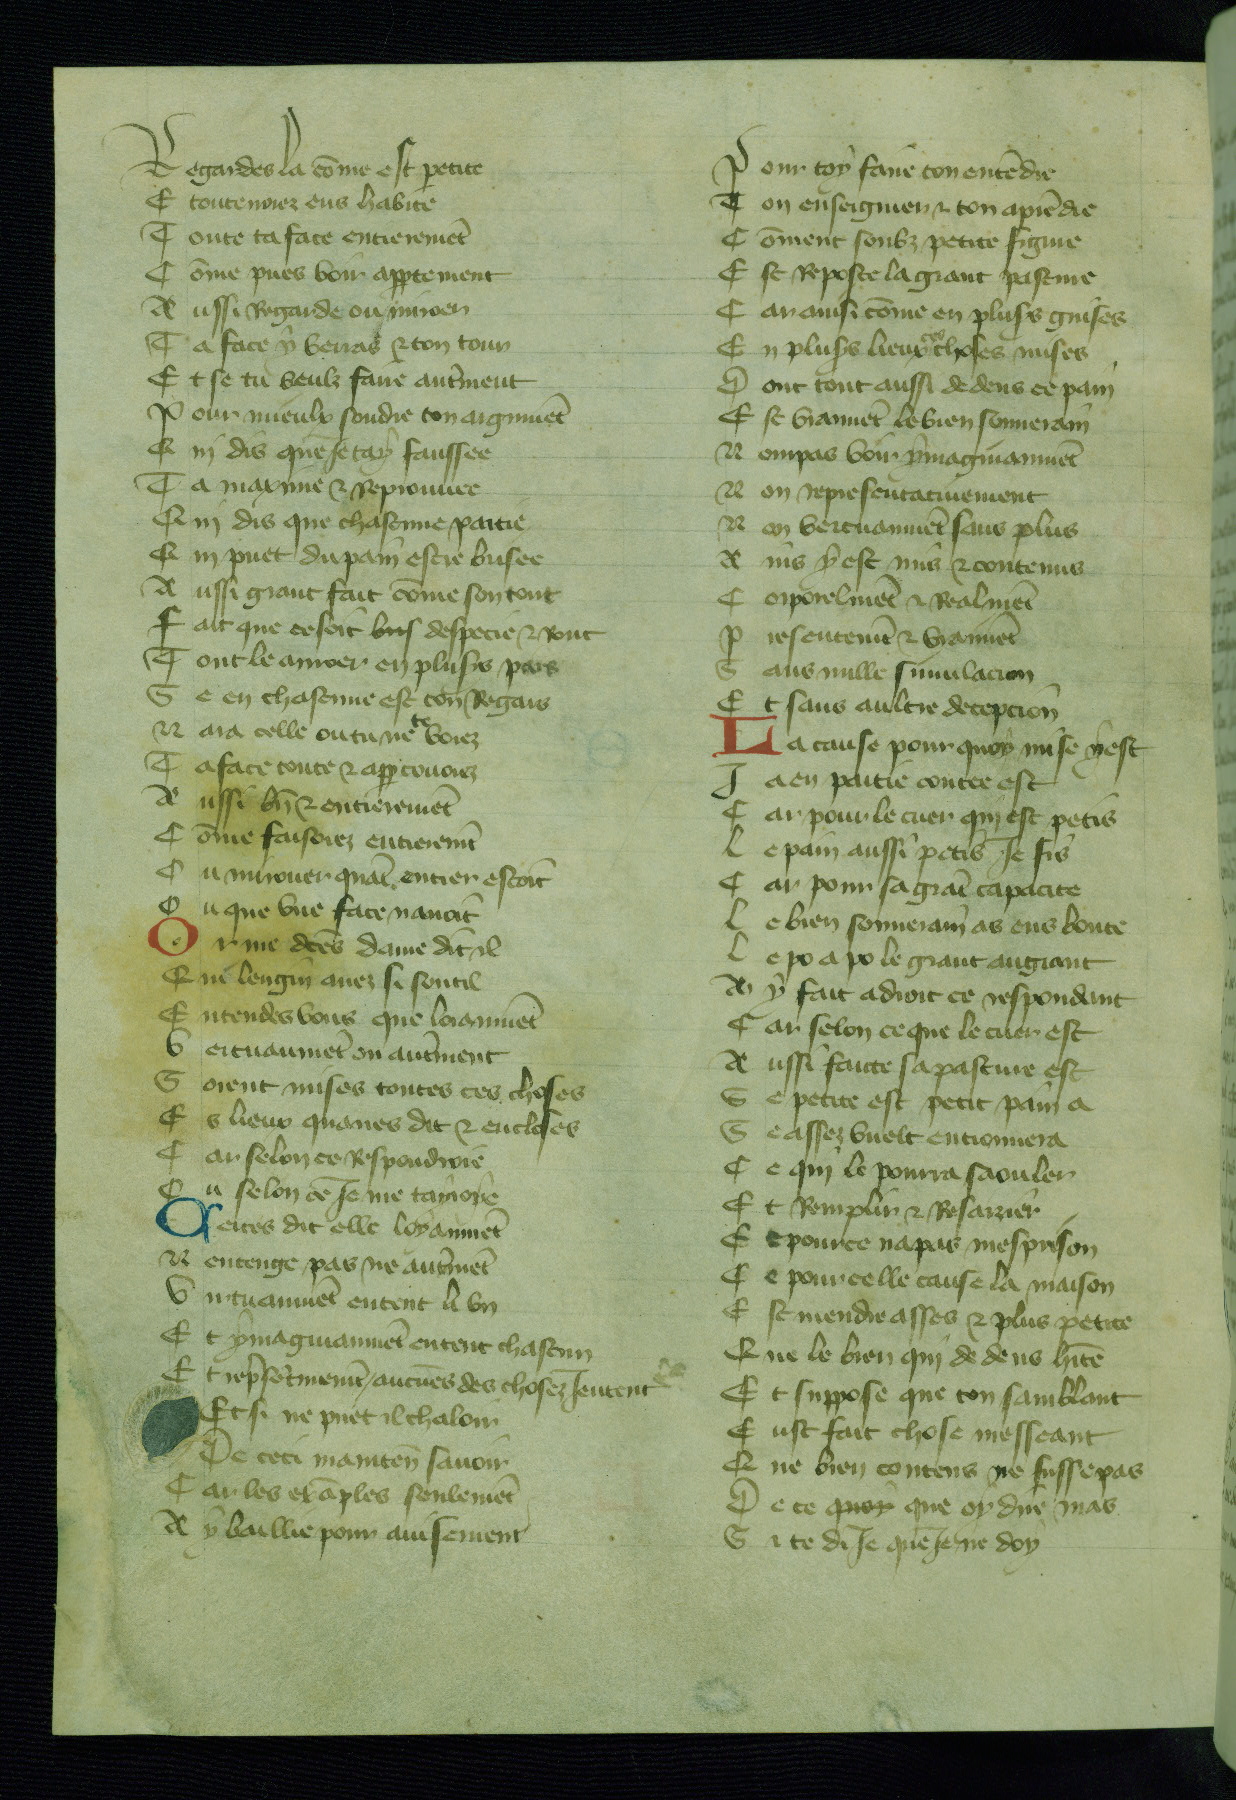 Regardes la cōme est petite
E toutenoiez ens habite
Toute ta face entieremēt
Cōme pues voir apptement
Aussi Regarde ou miroer
Ta face y verras & ton tour
Et se tu veulz faire autrment
Pour mieulx soudre ton argumēt
Qui dis que Je tay faussee
Ta maxime & Reprouuee
Qui dis que chascune partie
Qui puet du pain estre brisee
Aussi grant fait cōme son tout
Fait que ce soit bris despecie & Rout
Tout le miroer en plusrs pars
Se en chascune est ton Regars
Nara celle ou tu ne te voiez
Ta face toute & appcouoiez
Aussi bn̄ & entieremēt
Cōme faisoiez entieremt
Ou mirouer quāt entier estoit
Ou que vne face nauoit
Or me dctēs dame dit il
Qui lengin auez si soutil
Entendes vous que loiaumēt
Vertuaumēt ou autrment
Soient mises toutes ces choses
Es lieux quaues dit & encloses
Car selon ce Respondroie
Ou selon ce Je me tayroye
Certes dit elle loyaumēt
Nentenge pas ne autrmēt
Virtuaumēt entent li vn
Et ymaginaumēt entent chascun
Et reprsētmemt aucūes des chosez Jentent
Et si ne puet il chaloir
De ceci mainten̄ sauoir
Car les exāples seulemēt
Ay baillie pour auisement
Pour toy faire ton entēdre
Ton enseignier & ton aprēdre
Cōment soubz petite figure
Est Reposte la grant pasture
Car ainsi cōme en plusrs guises
En plusrs lieux choses mises
Sont tout aussi dedens ce pain
Est vraiemēt le bien souuerain
Nompas voir ymaginaumēt
Non representatiuement
Non vertuaumēt sans plus
Ains y est mis & contenus
Corporelmēt & Realmēt
Presentemt & vraimēt
Sans nulle simulacion
Et sans aultre decepcion
La cause pour quoy mise y est
Ja en partie contee est
Car pour le cuer qui est petis
Le pain aussi petis Je fis
Car pour sa grāt capacite
Le bien souuerain as ens boute
Le po a po le grant au grant
Ay fait a droit ce respondant
Car selon ce que le cuer est
Aussi faitte sa pasture est
Se petite est petit pain a
Se assez vuelt en trouuera
Ce qui le pourra saouler
Et Remplir & Resazier
Et pour ce na pas mesprison
Ce pour celle cause la maison
Est mendre asses & plus petite
Que le bien qui dedens hite
Et suppose que ton samblant
Eust fait chose messeant
Que bien contens ne fusse pas
De ce quoy que oy dire mas
Si te di Je que Je ne doy